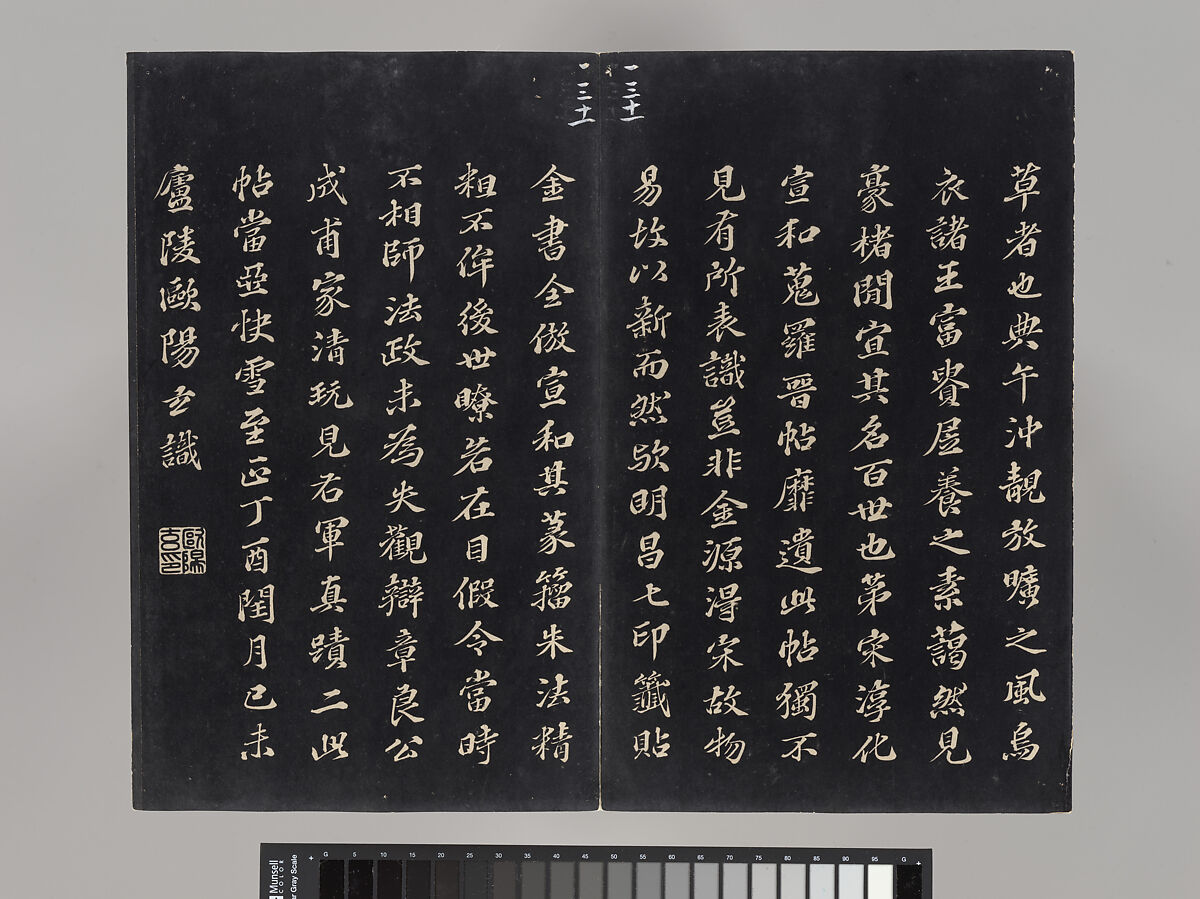 一三十一
草者也典午沖靚放曠之風烏
衣諸王富貴居養之素藹然見
豪楮間宣其名百世也第宋淳化
宣和蒐羅晉帖靡遺此帖獨不
見有所表識豈非金源得宋故物
易故以新而然歟明昌七印籤貼
一三十一
金書全倣宣和其篆籀朱法精
粗不侔後世瞭若在目假令當時
不相師法政未為失觀辯章良公
成甫家清玩見右軍真蹟二此
帖當亞快雪至正丁酉閏月己未
廬陵歐陽玄識
歐陽玄印
Munsell
COLOR
Gray Scale
G 5 10 15 20 25 30 35 40 45 50 55 60 65 70 75 80 85 90 95 G